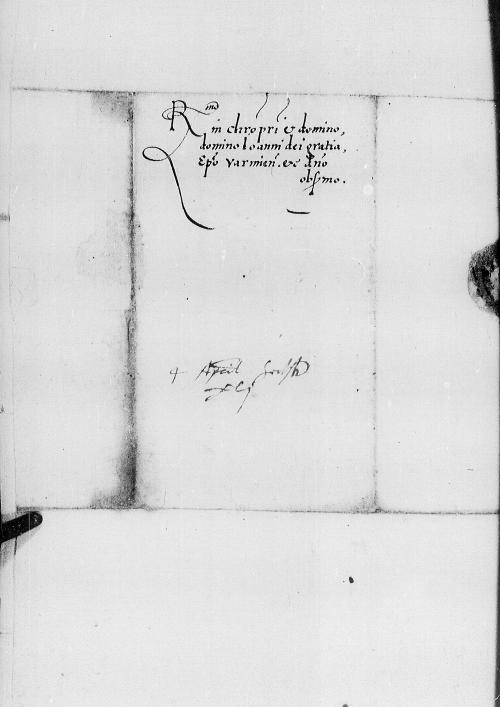 R mo
in chro pri et domino,
domino Ioanni dei gratia,
Epo varmien. etc dno
obsmo.
4 April